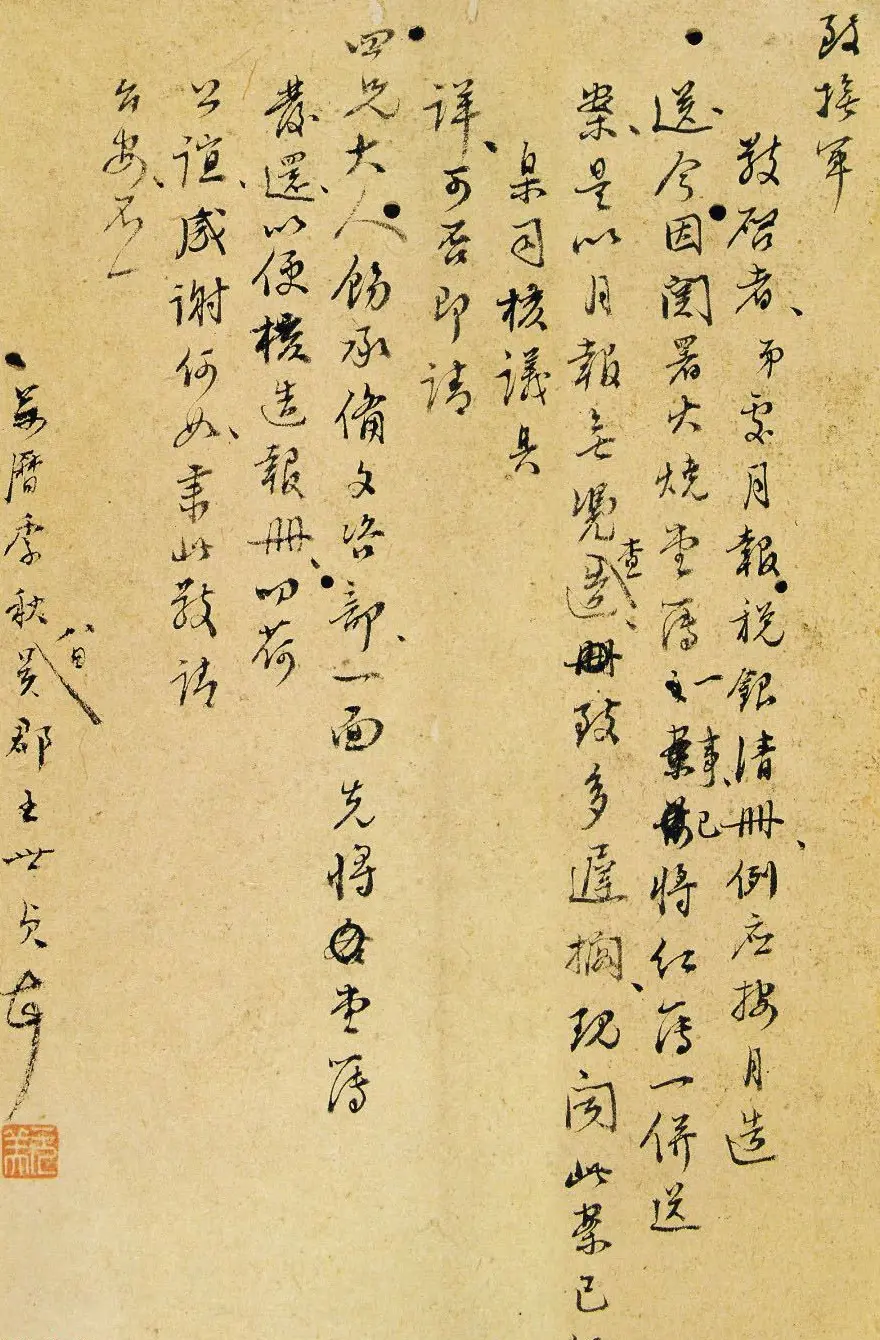 致撫軍
敬啓者、弟處月報税銀清冊、例應按月造
送、今因関署火燒堂簿一事、已將紅簿一併送
案、是以月報無憑查造、冊致多遲擱、現聞此案已
臬司核議具
詳、可否即請
四兄大人飭承備文咨部、一面先將堂簿
發還、以便核造報冊、叩荷
公誼、感謝何如、肅此敬請
台安、不一
萬曆季秋八日吳郡王世貞